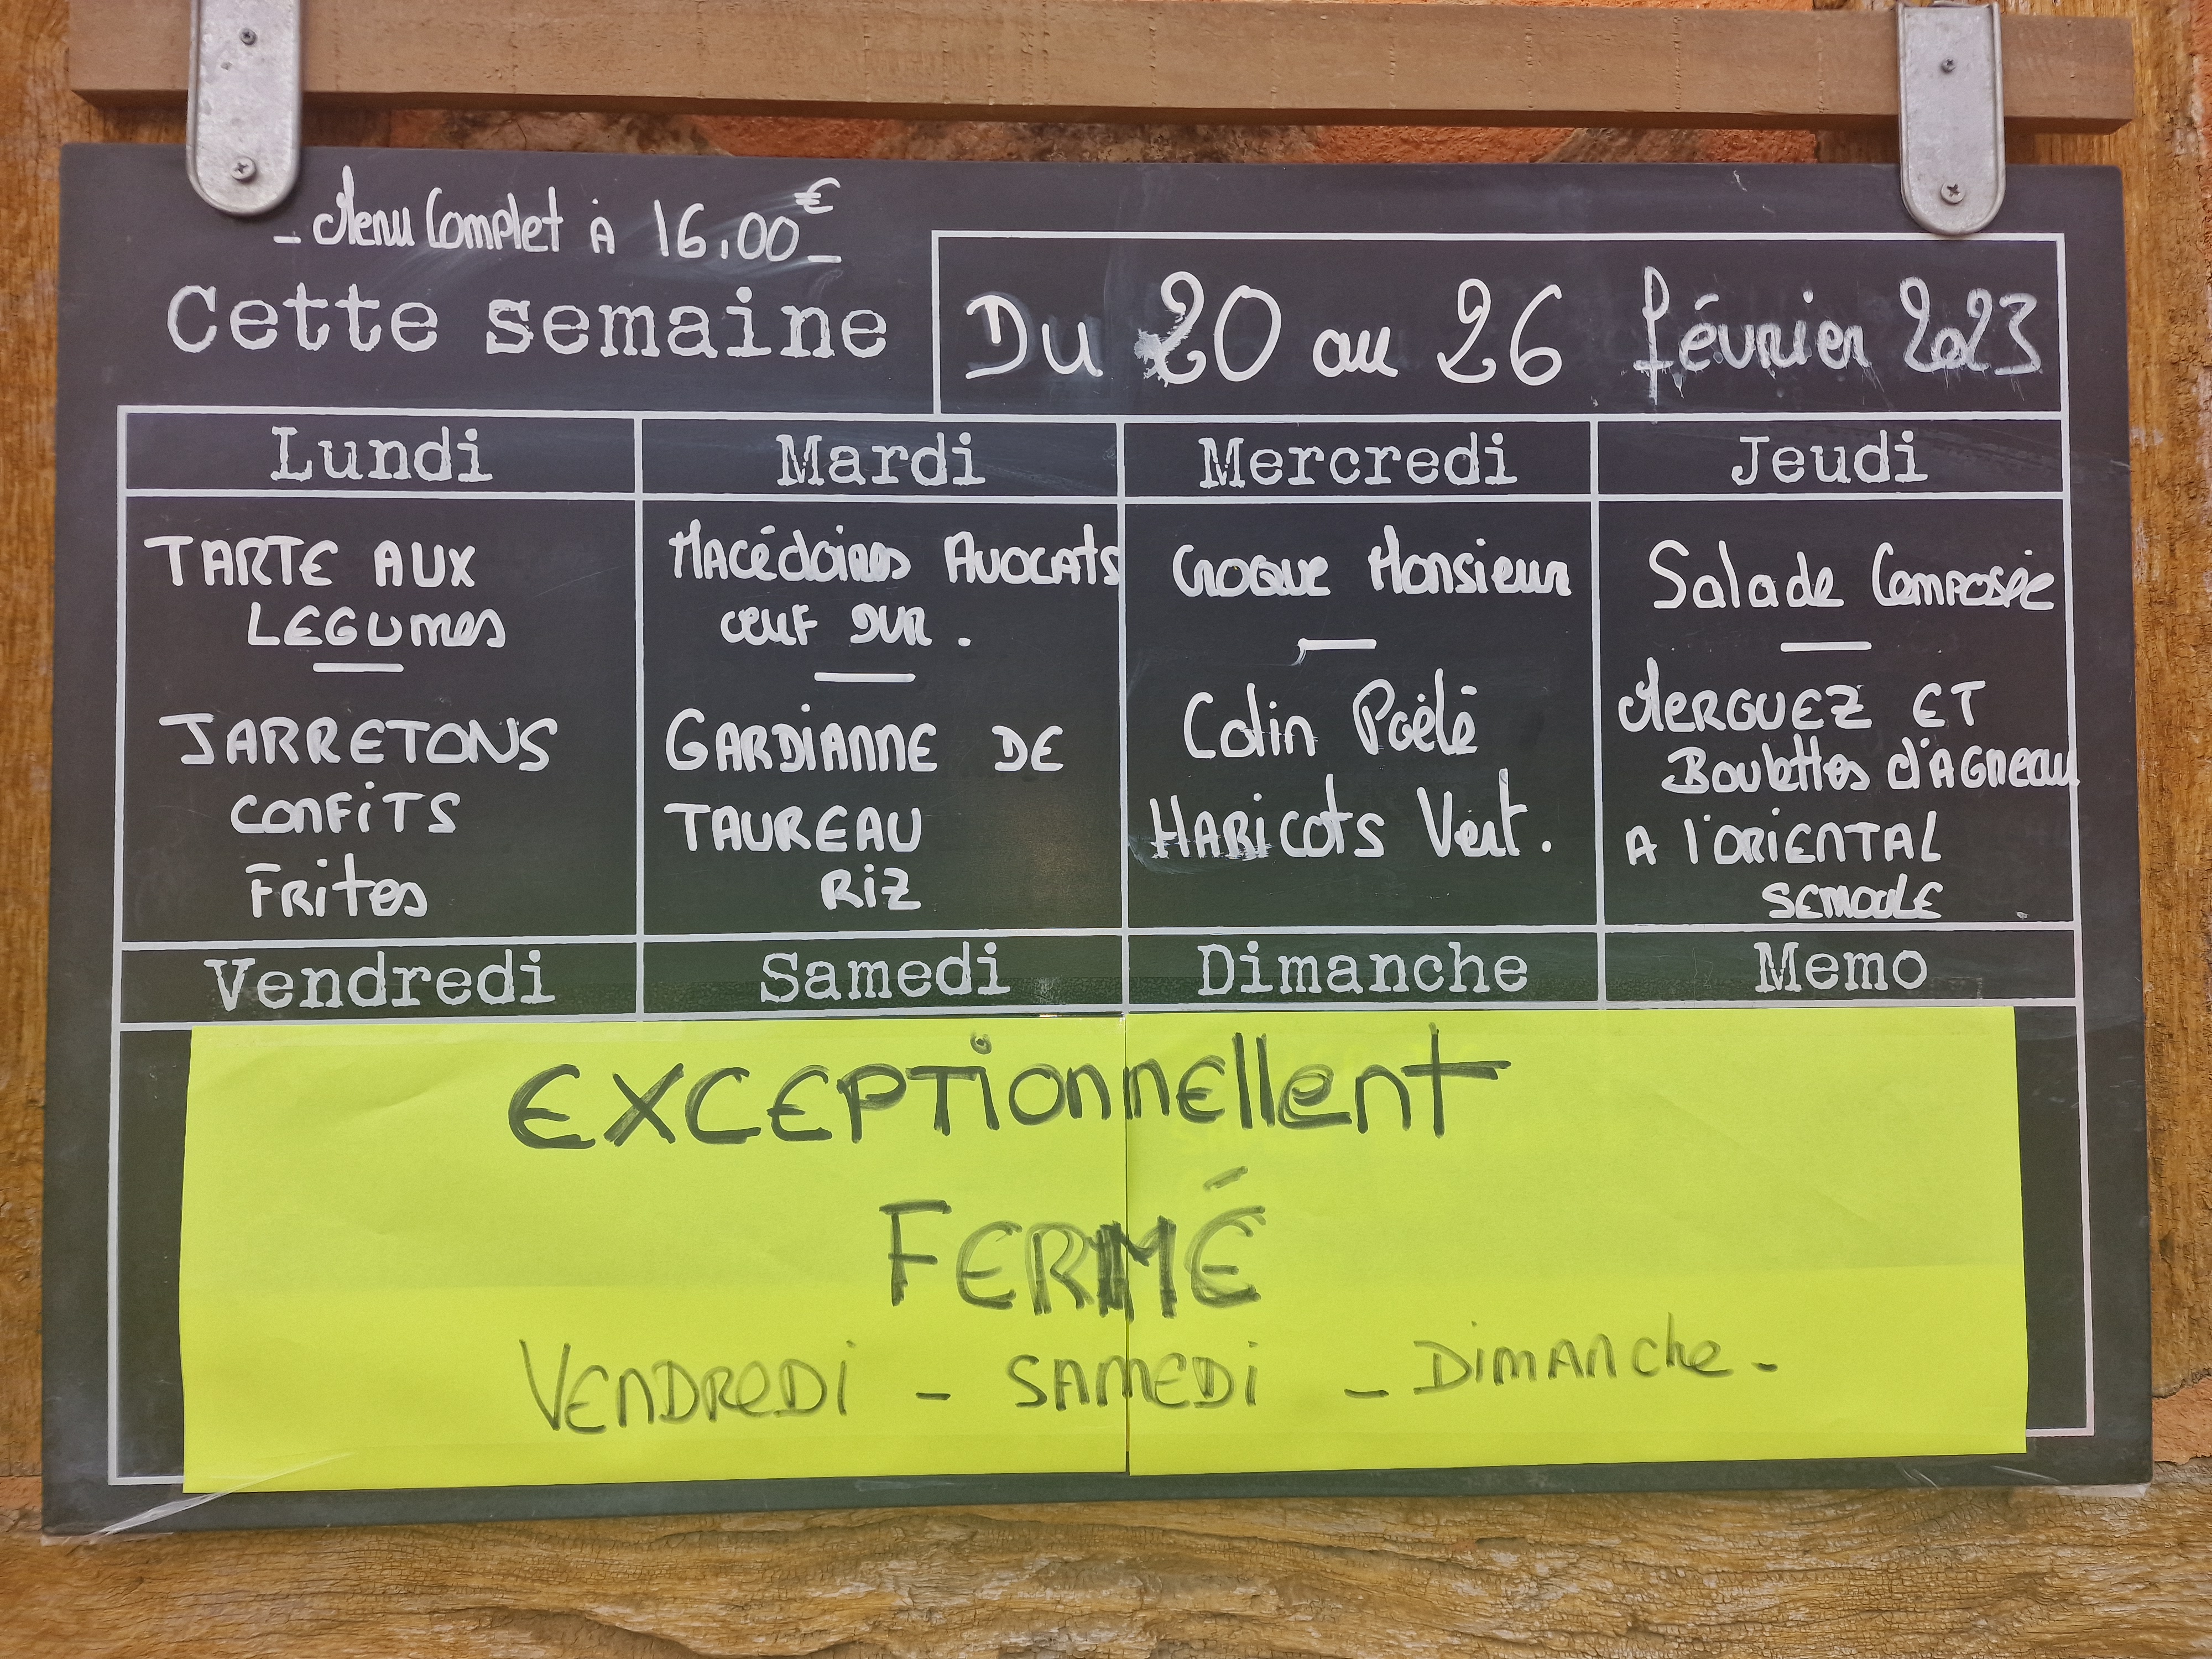 - Menu Complet à 16.00€ -
Cette semaine
Du 20 au 26 février 2023
Lundi
TARTE AUX
LEGUMES
JARRETONS
CONFITS
FRITES
Mardi
MACÉDOINES AVOCATS
OEUF DUR.
GARDIANNE DE
TAUREAU
RIZ
Mercredi
CROQUE MONSIEUR
Colin Poêlé
HARICOTS Vert.
Jeudi
Salade COMPOSÉE
MERGUEZ ET
Boulettes d'AGNEAU
A l'ORIENTAL
SEMOULE
Vendredi
Samedi
Dimanche
Memo
EXCEPTionnEllent
FERMÉ
VENDREDI - SAMEDI - DIMANche -